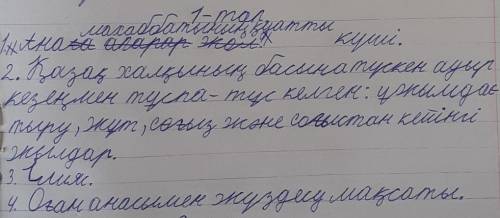 1-топ.
махаббатының құдіретті
1. Ана күші.
2. Қазақ халқының басына түскен ауыр
кезеңмен тұспа-тұс келген: ұжымдас
тыру, жұт, соғыс және соғыстан кейінгі
жылдар.
3. Әлия.
4. Оған анасымен жүздесу мақсаты.